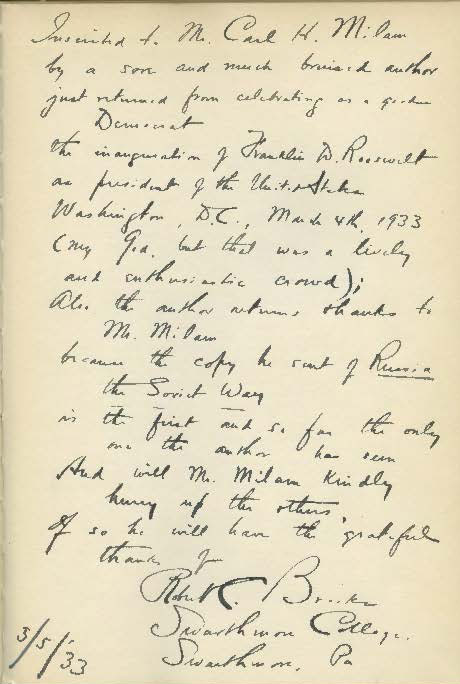 Inscribed to Mr. Carl H. Milam
by a sore and much bruised author
just returned from celebrating as a
Democrat
the inauguration of Franklin D. Roosevelt
as president of the United States
Washington, D.C., March 4th, 1933
(my God, but that was a lively
and enthusiastic crowd);
Also the author returns thanks to
Mr. Milam
because the copy he sent of Russia
the Soviet Way
is the first and so far the only
one the author has seen
And will Mr. Milam kindly
hurry up the others,
If so he will have the grateful
thanks of
Robert C. Brooks
Swarthmore College.
Swarthmore, Pa
3/5/'33